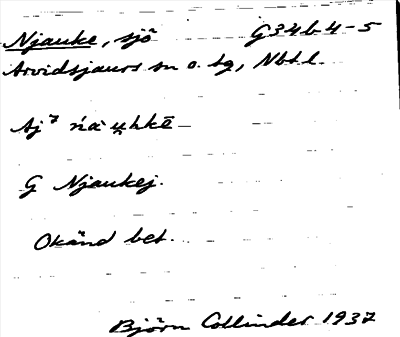 Njauke, sjö G34b4-5
Arvidsjaurs sn o. tg, Nbt l.
Aj
G Njaukej.
Okänd bet.
Björn Collinder 1937